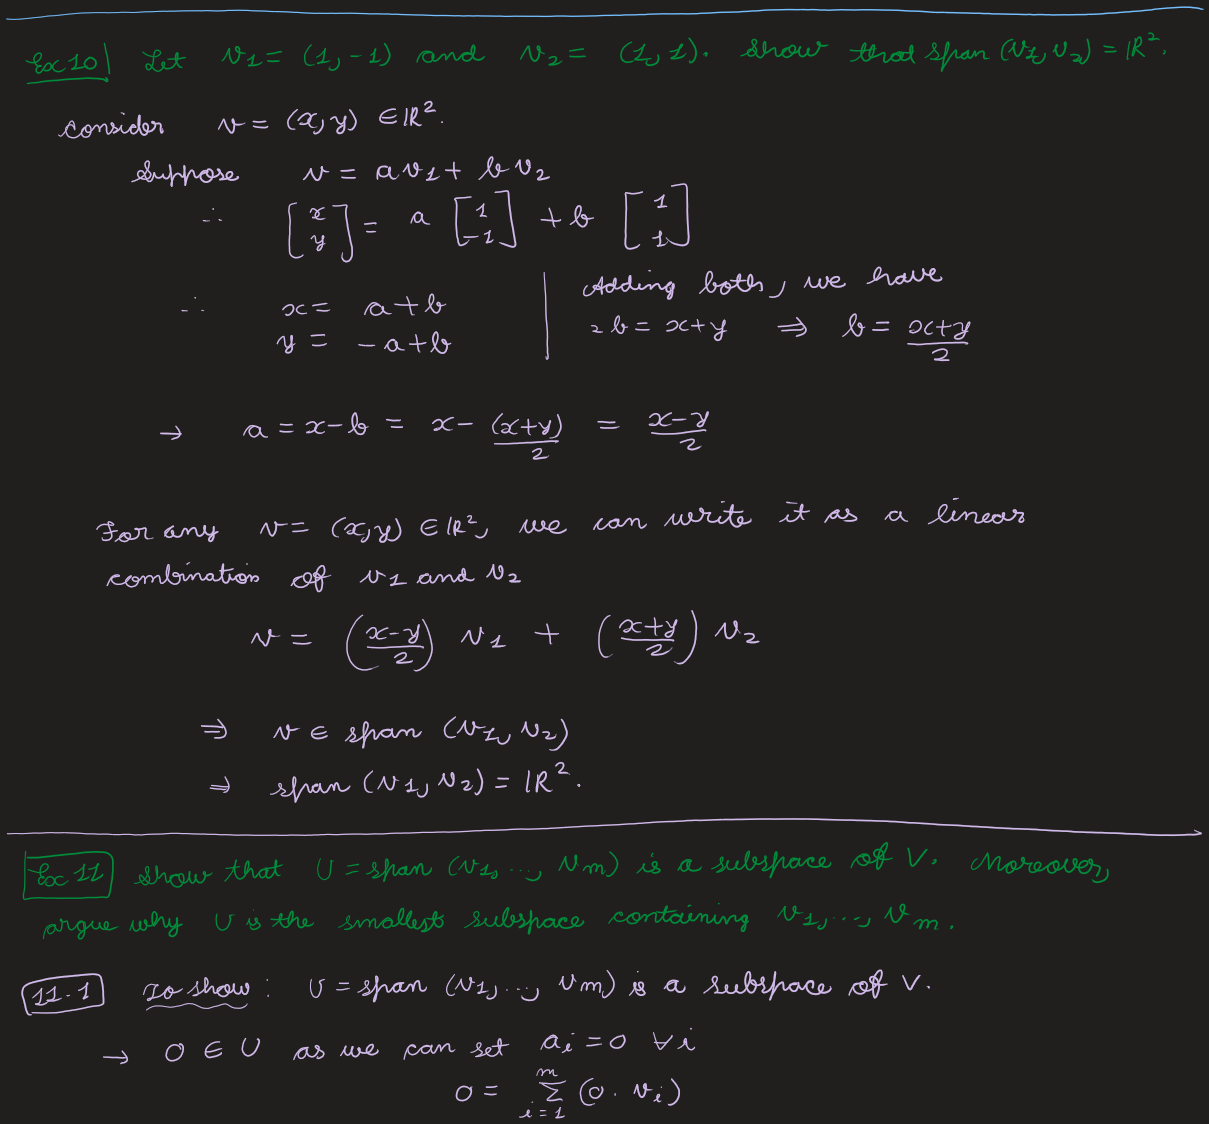 Ex 10 Let v1 = (1, -1) and v2 = (1, 1). Show that span (v1, v2) = ℝ².
Consider v = (x, y) ∈ ℝ².
Suppose v = a v1 + b v2
∴ [x y] = a [1 -1] + b [1 1]
∴ x = a + b
y = -a + b
Adding both, we have
2b = x + y ⇒ b = (x+y)/2
→ a = x - b = x - (x+y)/2 = (x-y)/2
For any v = (x, y) ∈ ℝ², we can write it as a linear
combination of v1 and v2
v = ((x-y)/2) v1 + ((x+y)/2) v2
⇒ v ∈ span (v1, v2)
⇒ span (v1, v2) = ℝ².
Ex 11 Show that U = span (v1, ..., vm) is a subspace of V. Moreover,
argue why U is the smallest subspace containing v1, ..., vm.
11.1 To show: U = span (v1, ..., vm) is a subspace of V.
→ 0 ∈ U as we can set ai = 0 ∀i
0 = Σ_{i=1}^{m} (0 · vi)